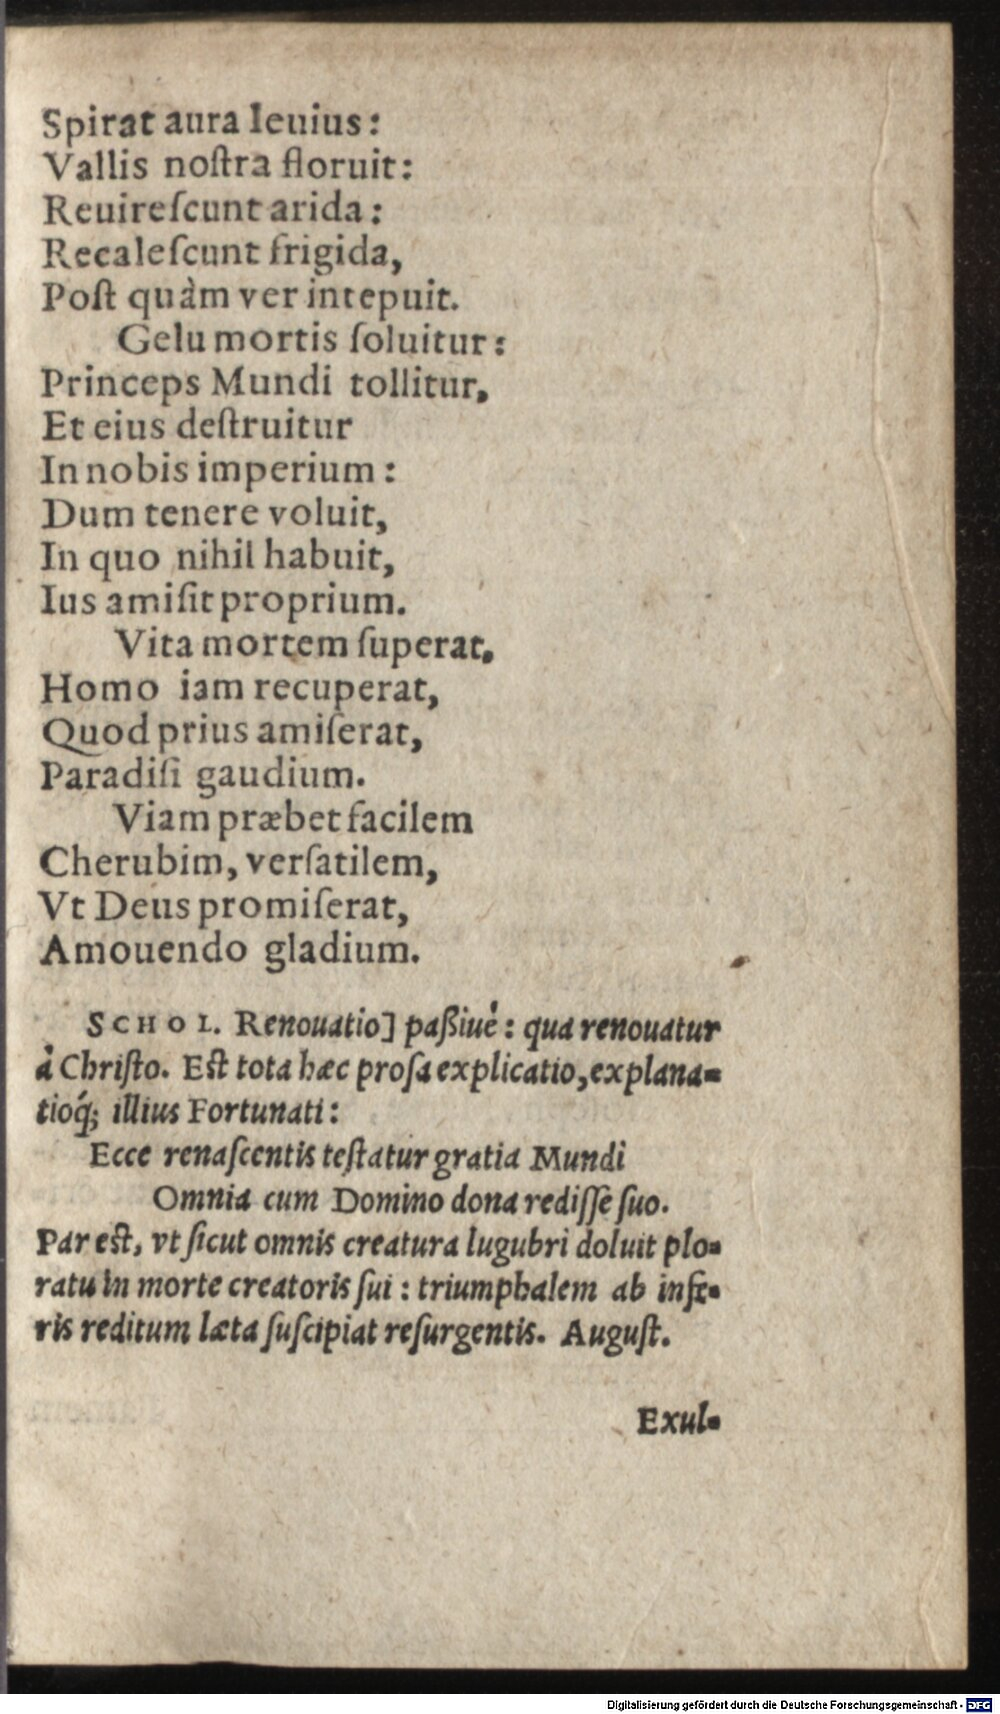 Spirat aura leuius:
Vallis noſtra floruit:
Reuireſcunt arida:
Recaleſcunt frigida,
Poſt quàm ver intepuit.
Gelu mortis ſoluitur:
Princeps Mundi tollitur,
Et eius deſtruitur
In nobis imperium:
Dum tenere voluit,
In quo nihil habuit,
Ius amiſit proprium.
Vita mortem ſuperat,
Homo iam recuperat,
Quod prius amiſerat,
Paradiſi gaudium.
Viam præbet facilem
Cherubim, verſatilem,
Vt Deus promiſerat,
Amouendo gladium.
SCHOL. Renouatio] paßiuè: qua renouatur
à Chriſto. Eſt tota hæc proſa explicatio, explana-
tioq́; illius Fortunati:
Ecce renaſcentis teſtatur gratia Mundi
Omnia cum Domino dona rediſſe ſuo.
Par eſt, vt ſicut omnis creatura lugubri doluit plo-
ratu in morte creatoris ſui: triumphalem ab infe-
ris reditum læta ſuſcipiat reſurgentis. Auguſt.
Exul-
Digitalisierung gefördert durch die Deutsche Forschungsgemeinschaft - DFG